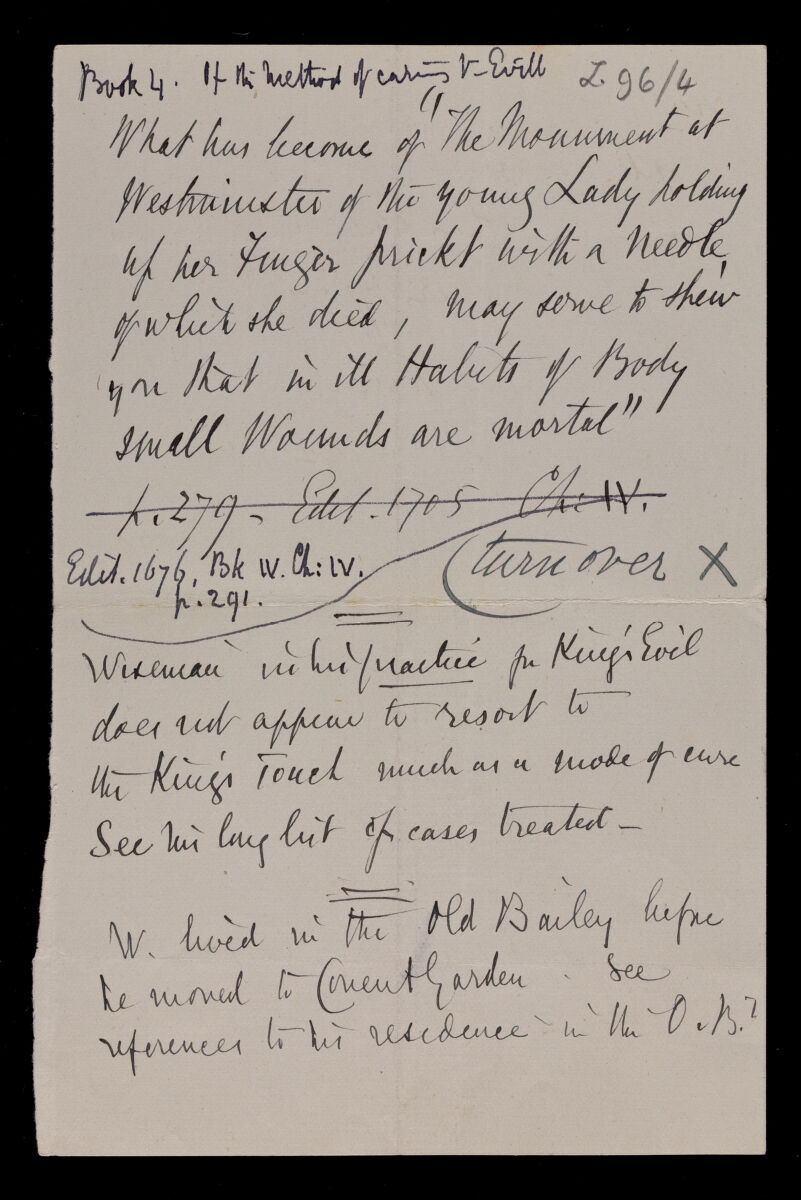 Book 4. Of the Method of curing Evill L. 96/4
What has become of "The Monument at
Westminster of the young Lady holding
up her Finger prickt with a Needle
of which she died, may serve to shew
you that in ill Habits of Body
small Wounds are mortal"
p. 279 - Edit. 1705 Ch: IV.
Edit. 1676, Bk IV. Ch: IV.
p. 291.
(turn over X
Wiseman in his practice for King's Evil
does not appear to resort to
the King's Touch much as a mode of cure
See his long list of cases treated -
W. lived in the Old Bailey before
he moved to Covent Garden. See
references to his residence in the O.B.?